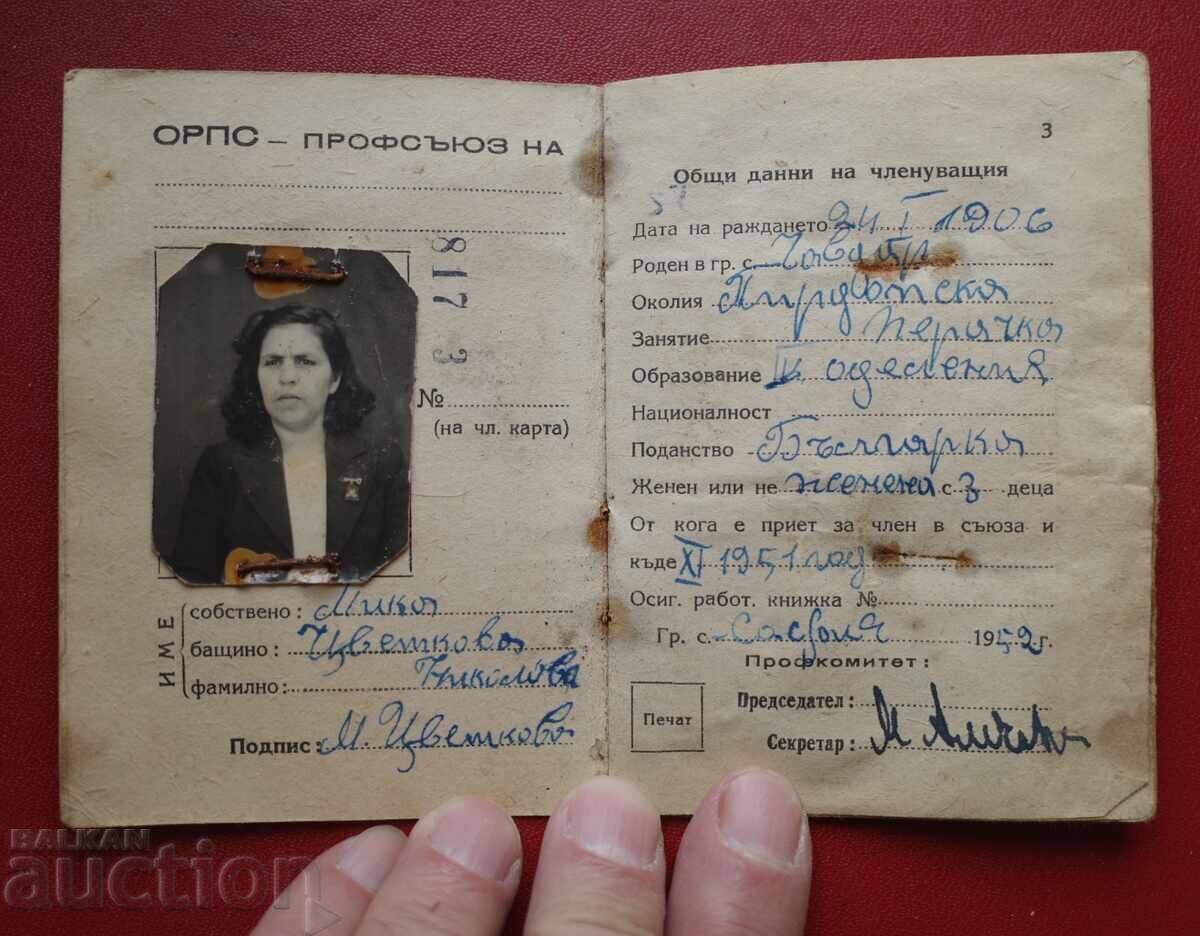 ОРПС – ПРОФСЪЮЗ НА
8173
№
(на чл. карта)
ИМЕ
собствено: Мика
бащино: Цветкова
фамилно: Николова
Подпис: М. Цветкова
3
Общи данни на членуващия
Дата на раждането 24 I 1906
Роден в гр. с. Чавдар
Околия Пирдопска
Занятие Перачка
Образование отделения
Националност
Поданство Българка
Женен или не женена с 3 деца
От кога е приет за член в съюза и
къде XI 1951 год
Осиг. работ. книжка №
Гр. с. София 1952 г.
Профкомитет:
Печат
Председател:
Секретар:
BALKAN
auction